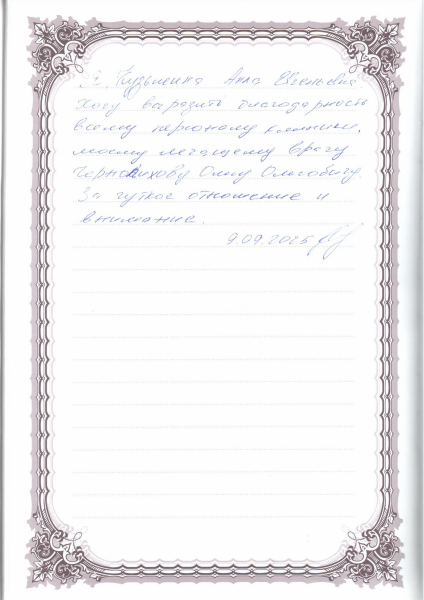 Я, Кузьменко Анна Евгеньевна
Хочу выразить благодарность
всему персоналу клиники,
моему лечащему врачу
Олегу Олеговичу
За чуткое отношение и
внимание.
9.09.2025